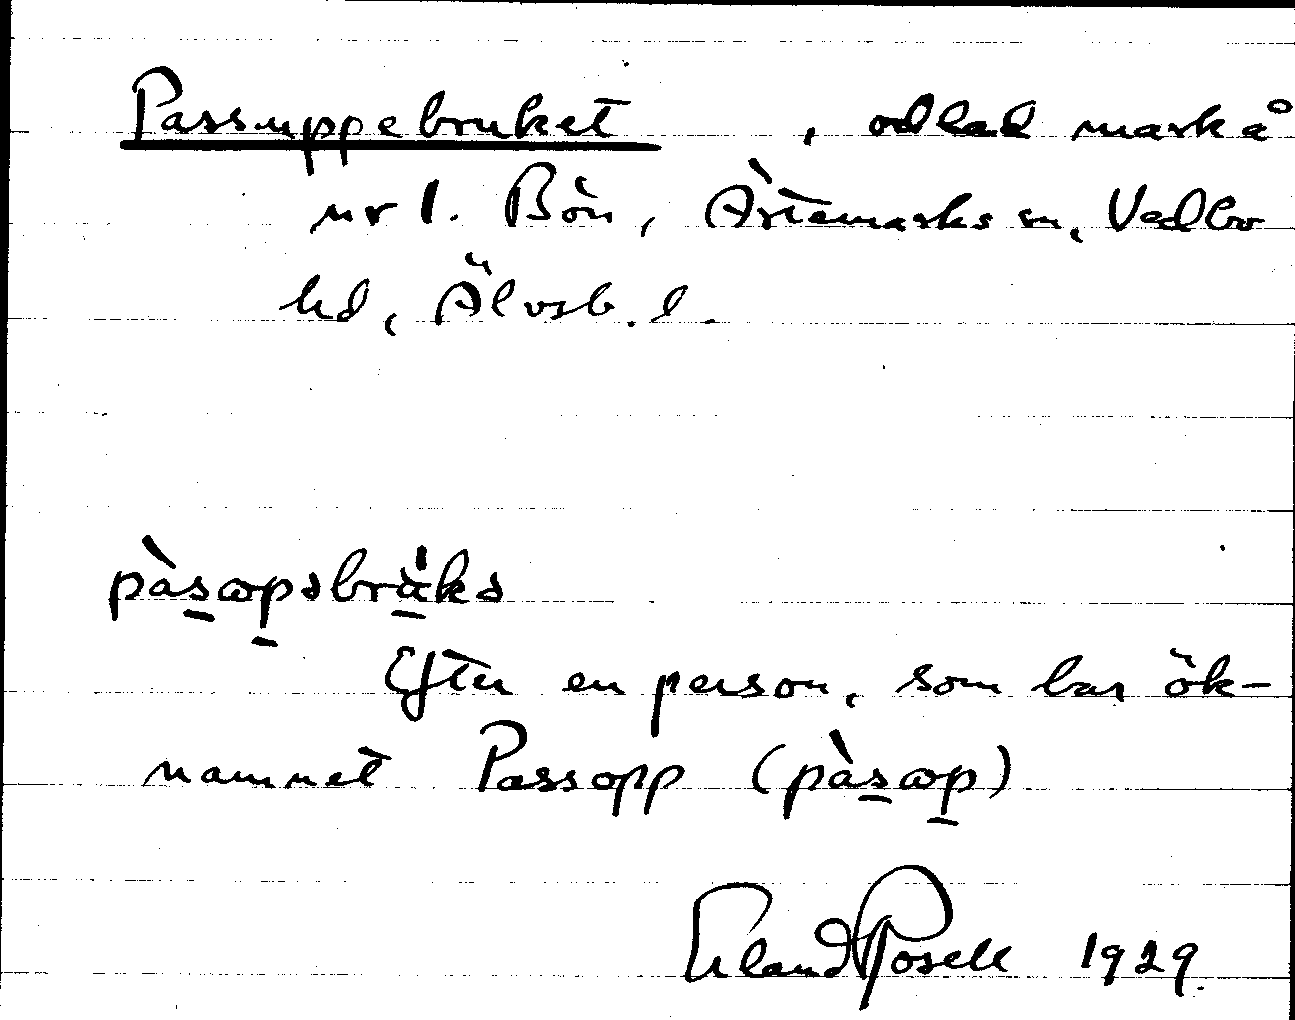 Passuppebruket , odlad mark å
nr 1. Bön, Ärtemarks sn, Vedbo
hd, Älvsb. l.
pàsæpəbrʉ̍kə
Efter en person, som bar ök-
namnet Passopp (pàsæp)
Erland Rosell 1929.